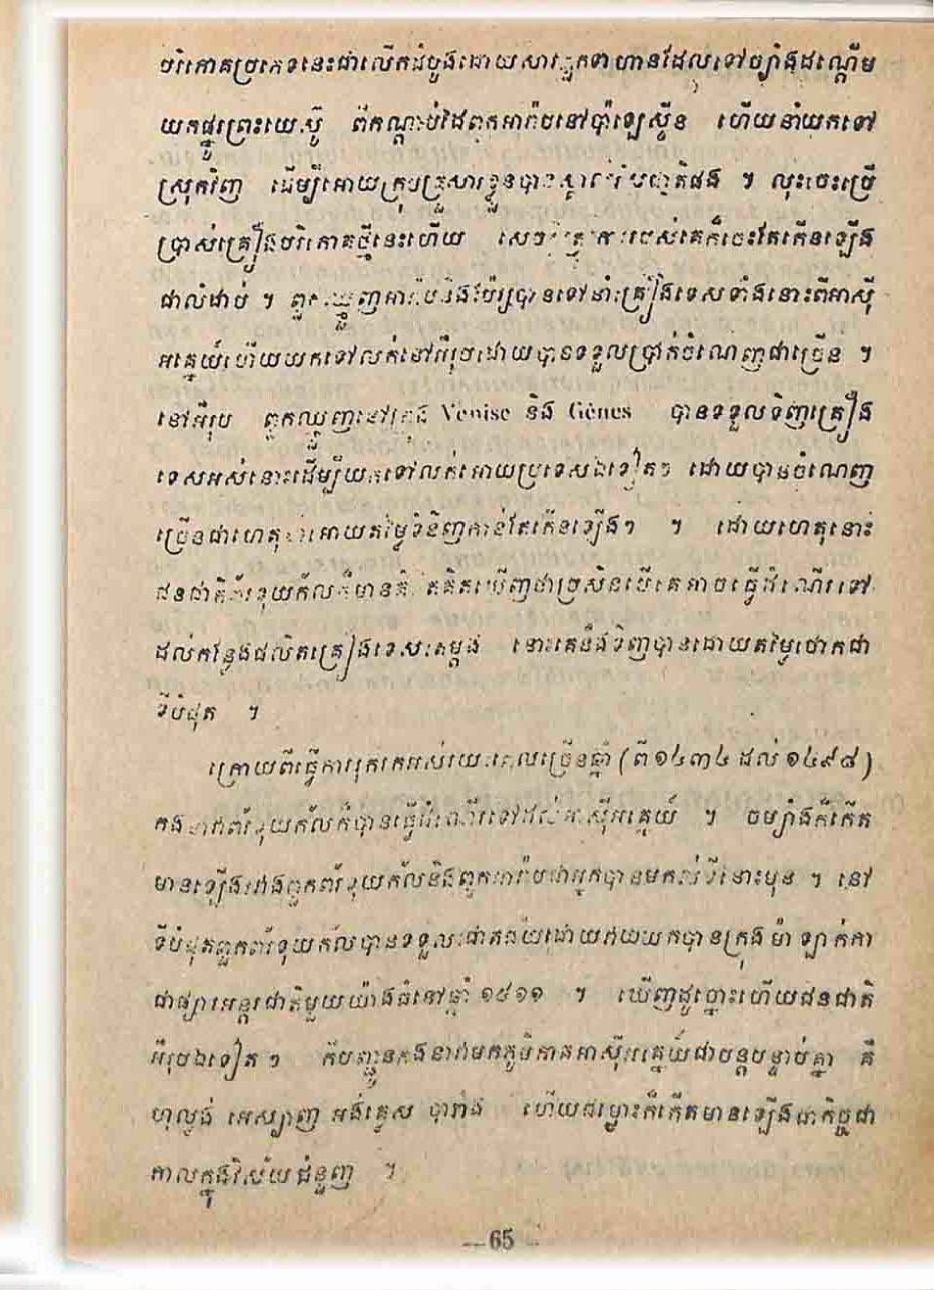 បរិភោគប្រភេទនេះជាលើកដំបូងដោយសារអ្នកទាហានដែលទៅច្បាំងដណ្ដើម
យកផ្នូរព្រះយេស៊ូ ពីកណ្ដាប់ដៃពួកអារ៉ាប់នៅប៉ាឡេស្ទីន ហើយនាំយកទៅ
ស្រុកវិញ ដើម្បីអោយក្រុមគ្រួសារខ្លួនបានស្គាល់រសជាតិផង ។ លុះចេះប្រើ
ប្រាស់គ្រឿងបរិភោគថ្មីនេះហើយ សេចក្ដីត្រូវការរបស់គេក៏ចេះតែកើនឡើង
ជាលំដាប់ ។ ពួកឈ្មួញអារ៉ាប់និងប៉ែរ្សបានទៅនាំគ្រឿងទេសទាំងនោះពីអាស៊ី
អគ្នេយ៍ហើយយកទៅលក់នៅអឺរុបដោយបានទទួលប្រាក់ចំណេញជាច្រើន ។
នៅអឺរុប ពួកឈ្មួញនៅក្រុង Venise និង Gênes បានទទួលទិញគ្រឿង
ទេសអស់នោះដើម្បីយកទៅលក់អោយប្រទេសឯទៀតៗ ដោយបានចំណេញ
ច្រើនជាហេតុនាំអោយតម្លៃទំនិញកាន់តែកើនឡើងៗ ។ ដោយហេតុនោះ
ជនជាតិព័រទុយកាល់ក៏មានគំនិតគិតឃើញថាប្រសិនបើគេអាចធ្វើដំណើរទៅ
ដល់កន្លែងផលិតគ្រឿងទេសម្ដង នោះគេនឹងទិញបានដោយតម្លៃថោកជា
ទីបំផុត ។
ក្រោយពីធ្វើការរុករកអស់រយៈពេលច្រើនឆ្នាំ ( ពី ១៤៣៤ ដល់ ១៤៩៨ )
កងនាវាព័រទុយកាល់ក៏បានធ្វើដំណើរទៅដល់អាស៊ីអគ្នេយ៍ ។ ចម្បាំងក៏កើត
មានឡើងរវាងពួកព័រទុយកាល់និងពួកអារ៉ាប់ជាអ្នកបានមកដល់ទីនោះមុន ។ នៅ
ទីបំផុតពួកព័រទុយកាល់បានទទួលជោគជ័យដោយវាយយកបានក្រុងម៉ាឡាក់កា
ជាផ្សារអន្តរជាតិមួយយ៉ាងធំនៅឆ្នាំ ១៥១១ ។ ឃើញដូច្នោះហើយជនជាតិ
អឺរុបឯទៀតៗ ក៏បញ្ជូនកងនាវាមកភូមិភាគអាស៊ីអគ្នេយ៍ជាបន្តបន្ទាប់គ្នា គឺ
ហុល្លង់ អេស្ប៉ាញ អង់គ្លេស បារាំង ហើយជម្លោះក៏កើតមានឡើងជាកិច្ចជា
កាលក្នុងវិស័យជំនួញ ។
— 65 —